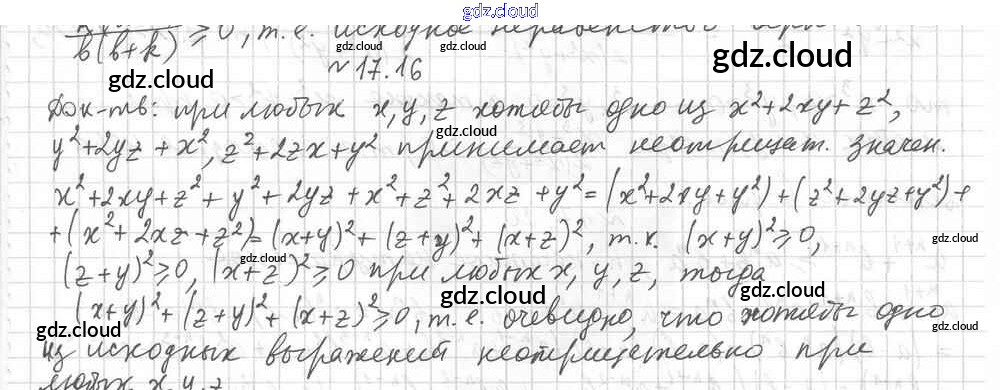 gdz.cloud
b(b+k) ≥ 0, т.е. исходное
gdz.cloud gdz.cloud gdz.cloud
N 17.16
gdz.cloud
Док-ть: при любых x, y, z хотябы одно из x²+2xy+z²,
gdz.cloud
y²+2yz+x², z²+2zx+y² принимает неотрицат. значен.
x²+2xy+z²+y²+2yz+x²+z²+2xz+y²=(x²+2xy+y²)+(z²+2yz+y²)+
+(x²+2xz+z²)=(x+y)²+(z+y)²+(x+z)², т.к. (x+y)²≥0,
gdz.cloud gdz.cloud
(z+y)²≥0, (x+z)²≥0 при любых x, y, z, тогда
gdz.cloud
(x+y)²+(z+y)²+(x+z)²≥0, т.е. очевидно, что хотябы одно
gdz.cloud gdz.cloud gdz.cloud gdz.cloud
из исходных выражений неотрицательно при
любых x, y, z